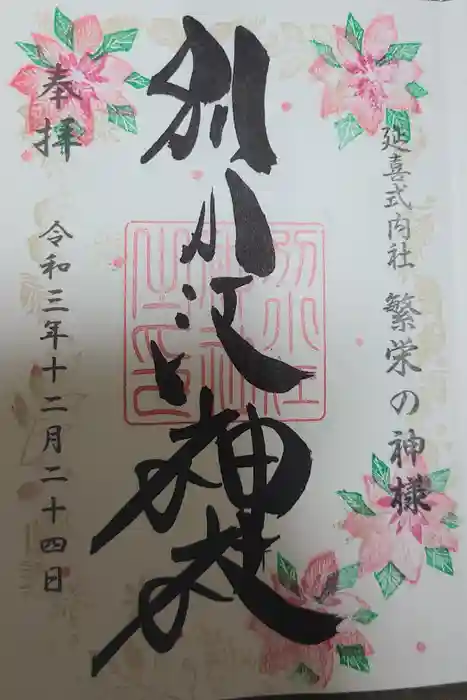 延喜式内社 繁栄の神様
別小江神社
奉拝
令和三年十二月二十四日